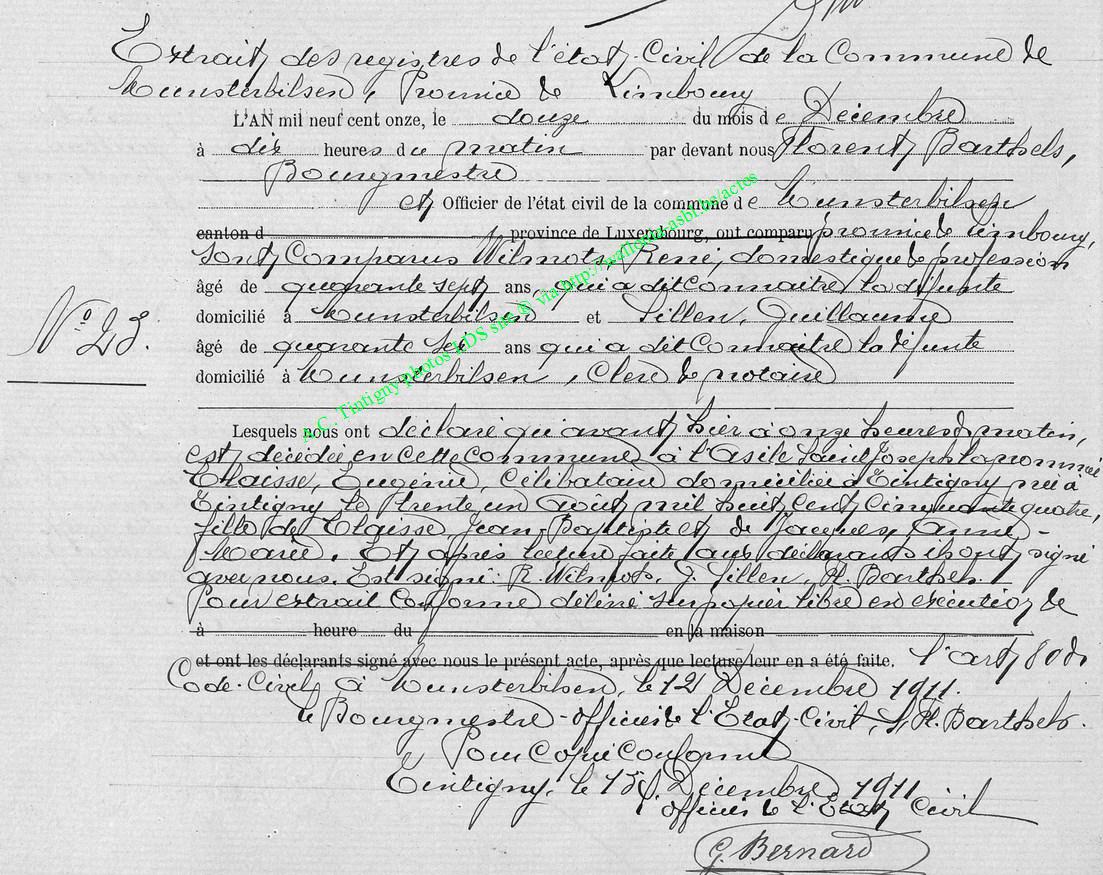 Extrait des registres de l'état-Civil de la Commune de
Munsterbilsen, Province de Limbourg
L'AN mil neuf cent onze, le douze du mois de Décembre
à dix heures du matin par devant nous Florent Barthels,
Bourgmestre
et Officier de l'état civil de la commune de Munsterbilsen
canton d province de Luxembourg, ont comparu province de Limbourg,
sont Comparus Wilmots, René, domestique de profession
âgé de quarante sept ans, qui a dit Connaitre la défunte
domicilié à Munsterbilsen et Lillen, Guillaume
N° 23.
âgé de quarante ans qui a dit Connaitre la défunte
domicilié à Munsterbilsen, Clerc de notaire
Lesquels nous ont déclaré qu'avant hier à onze heures du matin,
est décédée en cette commune à l'asile Saint Joseph la nommée
Claisse, Eugénie, Célibataire domiciliée à Tintigny née à
Tintigny le trente un Août mil huit cent cinquante quatre,
fille de Claisse, Jean-Baptiste et de Jacques, Anne-
Marie. Et après lecture faite aux déclarants ils ont signé
avec nous. Est signé: R. Wilmots, J. Lillen, Fl. Barthels.
Pour extrait Conforme délivré sur papier libre en exécution de
à heure du en la maison
et ont les déclarants signé avec nous le présent acte, après que lecture leur en a été faite. l'art 80 du
Code-Civil à Munsterbilsen, le 12 Décembre 1911.
le Bourgmestre-officier de l'Etat-Civil, Fl. Barthels.
Pour Copie Conforme
Tintigny, le 15 Décembre 1911
officier de l'Etat Civil
G. Bernard
A.C. Tintigny photos LDS site © via http://wallonia-asbl.be/actes